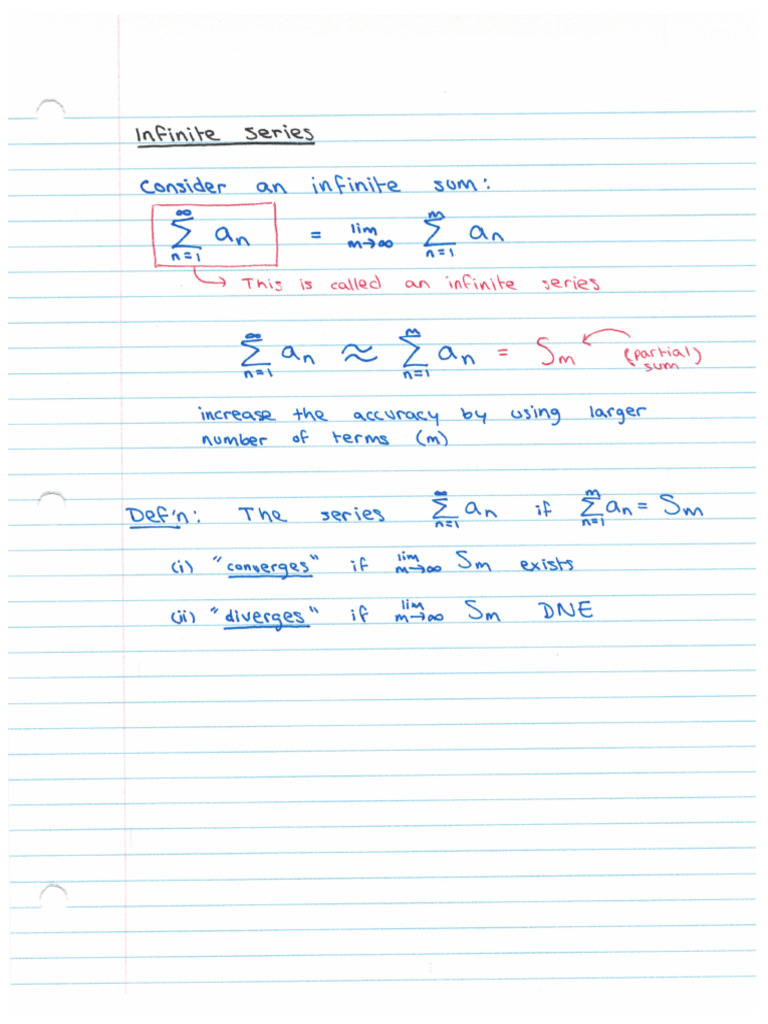 Infinite series
Consider an infinite sum:
∞∑n=1 aₙ = lim m→∞ m∑n=1 aₙ
This is called an infinite series
∞∑n=1 aₙ ≈ m∑n=1 aₙ = Sₘ (partial) sum
increase the accuracy by using larger
number of terms (m)
Def'n: The series ∞∑n=1 aₙ if m∑n=1 aₙ = Sₘ
(i) "converges" if lim m→∞ Sₘ exists
(ii) "diverges" if lim m→∞ Sₘ DNE